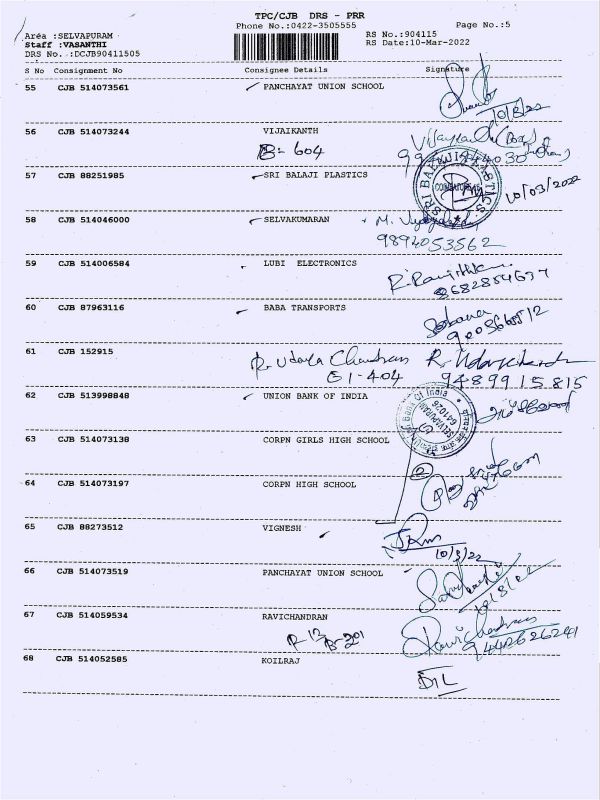 TPC/CJB DRS - PRR
Phone No.:0422-3505555
Page No.:5
Area :SELVAPURAM
Staff :VASANTHI
DRS No. :DCJB90411505
RS No.:904115
RS Date:10-Mar-2022
S No Consignment No Consignee Details Signature
55 CJB 514073561 PANCHAYAT UNION SCHOOL
10/3/22
56 CJB 514073244 VIJAIKANTH
B- 604
57 CJB 88251985 SRI BALAJI PLASTICS
SRI BALAJI PLASTICS
10/03/2022
58 CJB 514046000 SELVAKUMARAN
9894053562
59 CJB 514006584 LUBI ELECTRONICS
60 CJB 87963116 BABA TRANSPORTS
61 CJB 152915 R. Udaya Chandran
G1-404 9489915815
62 CJB 513998848 UNION BANK OF INDIA
SELVAPURAM
641026
63 CJB 514073138 CORPN GIRLS HIGH SCHOOL
64 CJB 514073197 CORPN HIGH SCHOOL
65 CJB 88273512 VIGNESH
10/3/22
66 CJB 514073519 PANCHAYAT UNION SCHOOL
10/3/22
67 CJB 514059534 RAVICHANDRAN
Ravichandran
9442626241
68 CJB 514052585 KOILRAJ